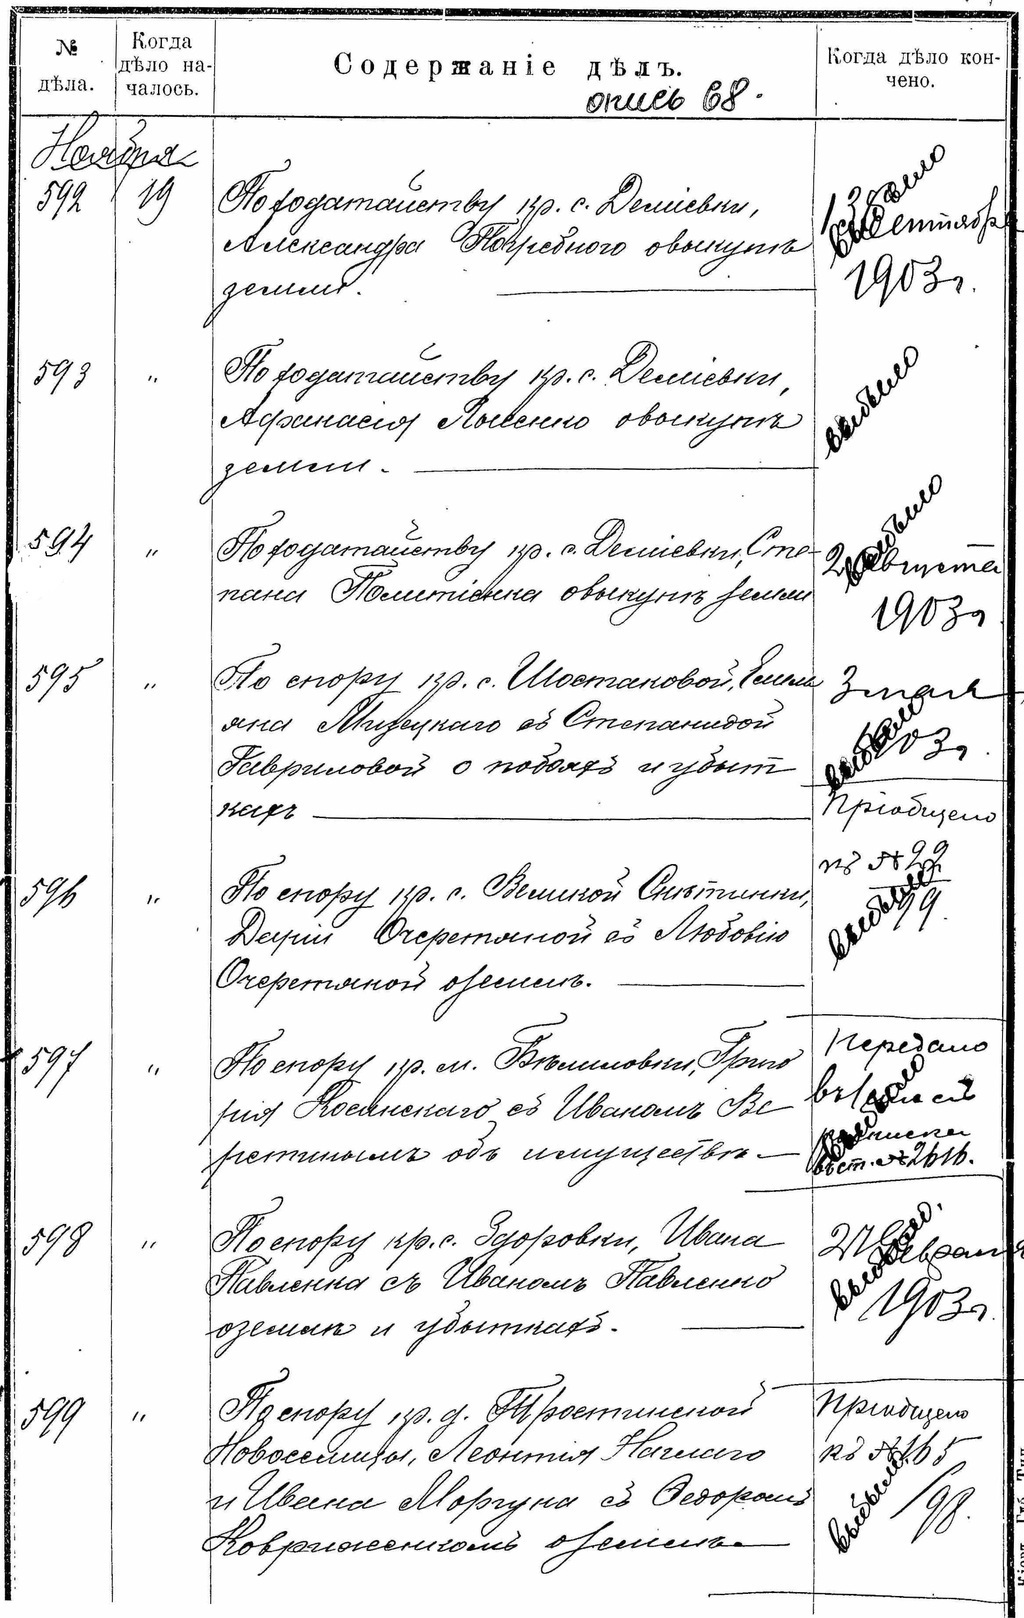 № дѣла.
Когда дѣло на-
чалось.
Содержаніе дѣлъ.
Когда дѣло кон-
чено.
опись 68.
Ноября
592 19 По ходатайству кр. с. Деміевки,
Александра Погребного овыкупѣ
земли.
выбыло
13 Сентября
1903г.
593 " По ходатайству кр. с. Деміевки,
Афанасія Лысенко овыкупѣ
земли.
выбыло
594 " По ходатайству кр. с. Деміевки, Сте-
пана Политіенка овыкупѣ земли
выбыло
2 Августа
1903г
595 " По спору кр. с. Шостаковой, Емель
яна Мизецкаго съ Степанидой
Гавриловой о побояхъ и убыт
кахъ
3 мая
1903г.
выбыло
596 " По спору кр. с. Великой Снѣтинки,
Даріи Очеретяной съ Любовію
Очеретяной оземлѣ.
Пріобщено
къ № 22
99.
выбыло
597 " По спору кр. м. Бѣлиловки, Григо
рія Косинскаго съ Иваномъ Ве
ретиномъ объ имуществѣ
Передано
выбыло
вст. № 2616.
598 " По спору кр. с. Здоровки, Ивана
Павленка съ Иваномъ Павленко
оземлѣ и убыткахъ.
27 Февраля
выбыло.
1903г.
599 " По спору кр. д. Тростинской
Новоселицы, Леонтія Наглаго
и Ивана Моргуна съ Федоромъ
Ковриженкомъ оземлѣ
Пріобщено
къ № 165
/98.
выбыло